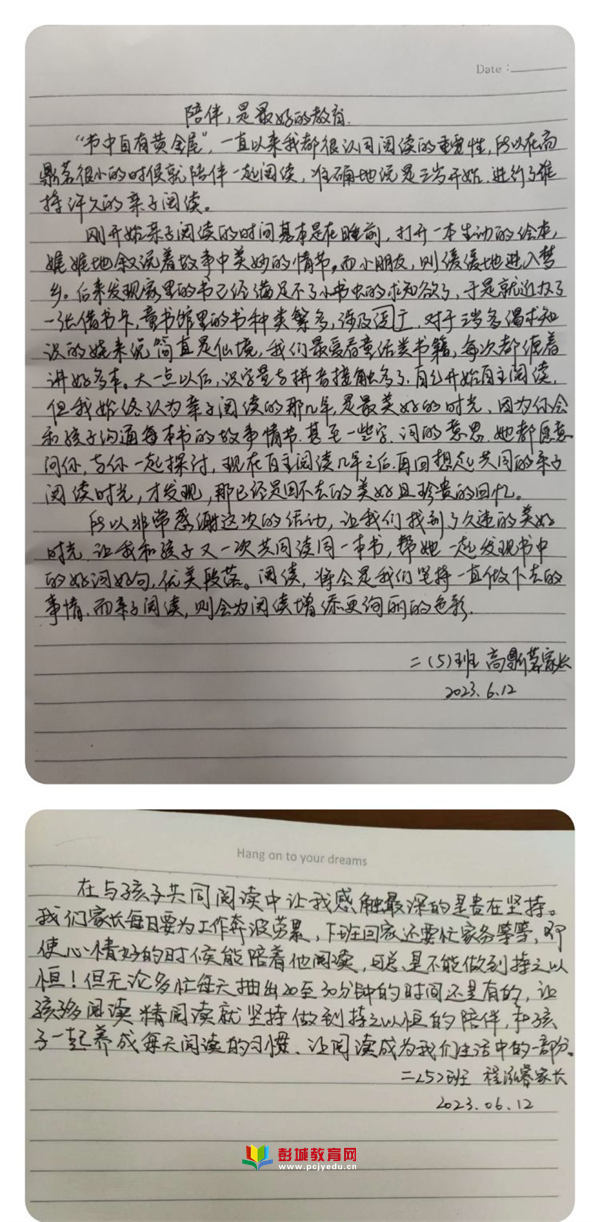 Date:
陪伴,是最好的教育.
“书中自有黄金屋”,一直以来我都很认同阅读的重要性,所以在高
鼎茗很小的时候就陪伴一起阅读,准确地说是三岁开始.进行了维
持许久的亲子阅读。
刚开始亲子阅读的时间基本是在睡前,打开一本生动的绘本,
娓娓地叙说着故事中美妙的情节,而小朋友,则缓缓地进入梦
乡。后来发现家里的书已经满足不了小书虫的求知欲了,于是就近办了
一张借书卡,图书馆里的书种类繁多,涉及面广,对于三岁多渴求知
识的娃来说简直是仙境,我们最爱看童话类书籍,每次都催着
讲好多本。大一点以后,汉字量与拼音接触多了,自己开始自主阅读,
但我始终认为亲子阅读的那几年,是最美好的时光,因为你会
和孩子沟通每本书的故事情节.甚至一些字.词的意思.她都愿意
问你,与你一起探讨,现在自主阅读几年之后.再回想起共同的亲子
阅读时光,才发现,那已经是回不去的美好且珍贵的回忆。
所以非常感谢这次的活动,让我们找到了久违的美好
时光.让我和孩子又一次共同读同一本书,帮她一起发现书中
的好词好句,优美段落。阅读,将会是我们坚持一直做下去的
事情.而亲子阅读,则会为阅读增添更绚丽的色彩.
二(5)班 高鼎茗家长
2023.6.12
Hang on to your dreams
在与孩子共同阅读中让我感触最深的是贵在坚持。
我们家长每日要为工作奔波劳累,下班回家还要忙家务等等,即
使心情好的时候能陪着他阅读,可总是不能做到持之以
恒!但无论多忙每天抽出20至30分钟的时间还是有的,让
孩子阅读 精阅读就坚持做到持之以恒的陪伴,和孩
子一起养成每天阅读的习惯、让阅读成为我们生活中的一部分。
二<5>班 程泓睿家长
2023.06.12
彭城教育网
www.pcjyedu.cn